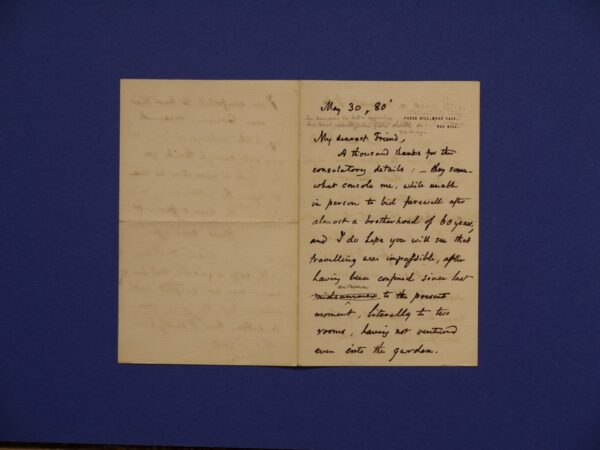 May 30, 80'
FURZE HILL, MERE VALE,
RED HILL.
My dearest Friend,
A thousand thanks for the
consolatory details : – they some-
what console me, while unable
in person to bid farewell after
almost a brotherhood of 60 years,
and I do hope you will see that
travelling was impossible, after
having been confined since last
autumn
midsummer to the present
moment, literally to two
rooms, having not ventured
even into the garden.